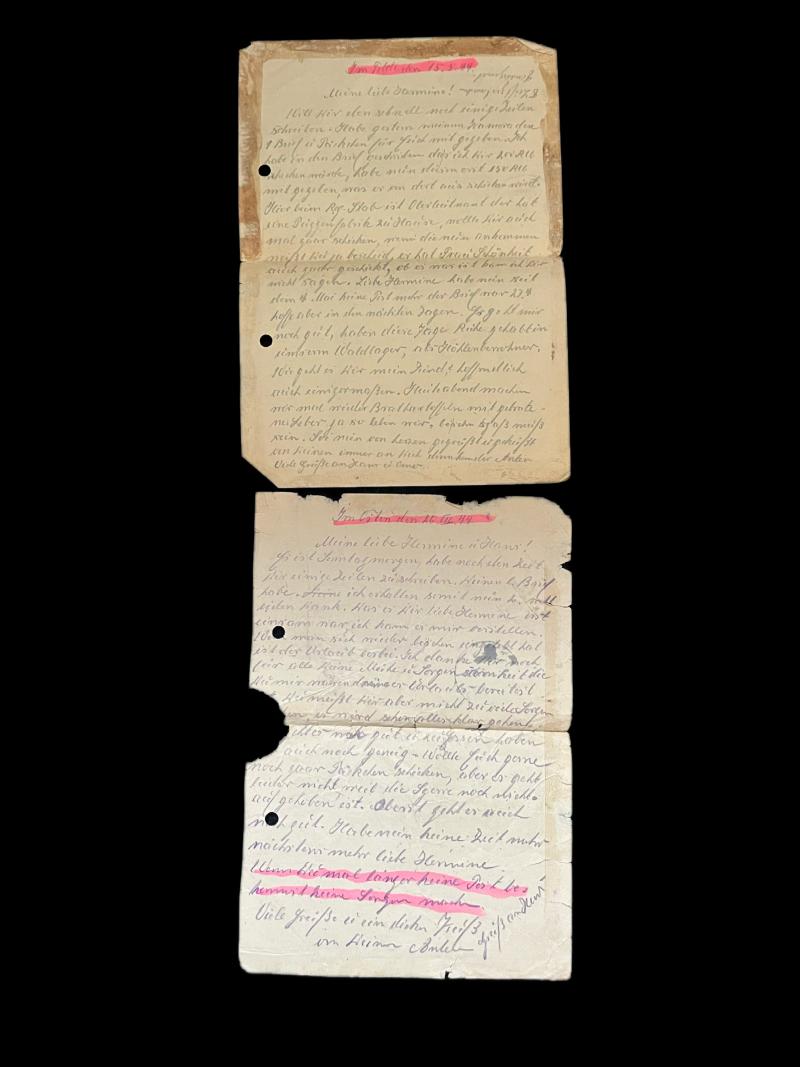 Im Felde den 15.5.44.
Meine liebe Hermine!
Will dir eben schnell noch einige Zeilen
schreiben. Habe gestern meinem Kameraden
1 Brief u Päckchen für Euch mit gegeben. Ich
habe in den Brief geschrieben daß ich dir 200 RM
schicken würde, habe nun diesem erst 150 RM
mit gegeben, was er von dort aus schicken wird.
Hier beim Rgt. Stab ist Oberleitnant der hat
eine Puppenfabrik zu Hause, wollte dir auch
mal paar schicken, wenn die nun ankommen
weißt du ja bescheid, er hat Frau Schönheit
auch paar geschickt, ob es war ist kann ich dir
nicht sagen. Liebe Hermine habe nun seit
dem 4 Mai keine Post mehr der Brief war 27.4
hoffe aber in den nächsten Tagen. Es geht mir
noch gut, haben diese Tage Ruhe gehabt in
unserm Waldlager, als Höhlenbewohner.
Wie geht es dir mein Kind? hoffendlich
auch einigermaßen. Heute abend machen
wir mal wieder Bratkartoffeln mit
ja so leben wir, bischen Spaß muß
sein. Sei nun von herzen gegrüßt u geküßt
von deinem immer an dich denkender Anton
Viele Grüße an Hans u
Im Osten den 26 44
Meine liebe Hermine u Hans!
Es ist Sonntagmorgen, habe noch eben Zeit
dir einige Zeilen zu schreiben. Deinen l. Brief
habe ich erhalten somit nun
vielen Dank. Was es dir liebe Hermine erst
einsam war ich kann es mir vorstellen.
Wenn man sich wieder bischen eingelebt hat
ist der Urlaub vorbei. Ich danke dir noch
für alle deine Mühe u Sorgen die
du mir während meines Urlaubs bereitest
Du mußt dir aber nicht zu viele Sorgen
es wird schon alles klar gehen
gut u zu essen haben
auch noch genug. Wollte Euch gerne
noch paar Päckchen schicken, aber es geht
leider nicht weil die Sperre noch nicht
auf gehoben ist. Oberst geht es auch
noch gut. Habe nun keine Zeit mehr
nächstens mehr liebe Hermine
Wenn du mal länger keine Post be-
kommst keine Sorgen machen
Viele Grüße u ein dicken Kuß
von deinem Anton
Gruß an Hans